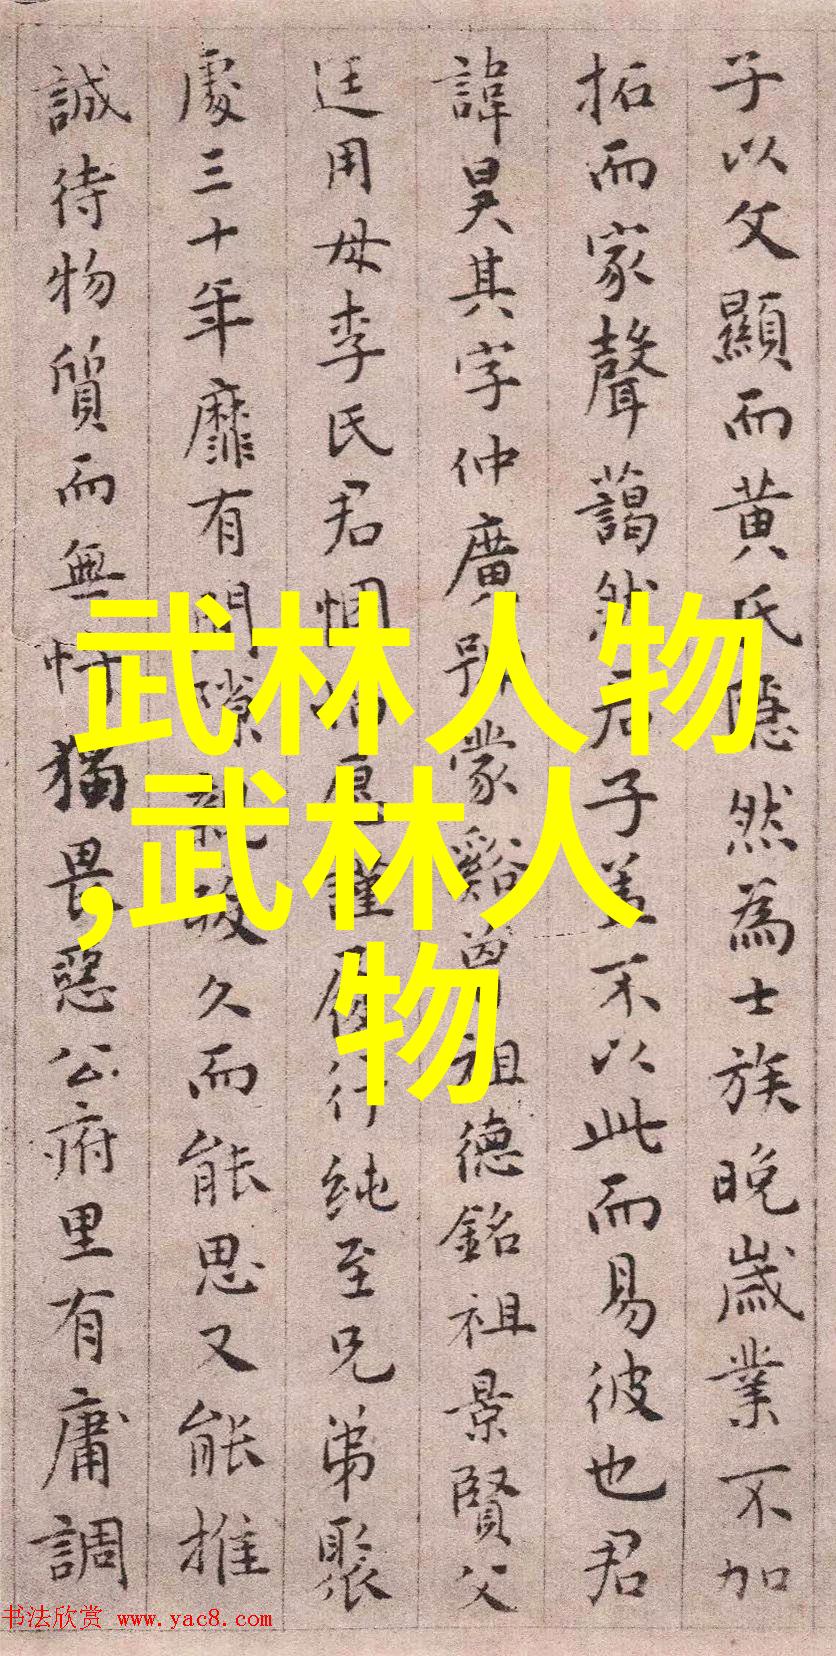 子以父顯而黄氏隱然為士族晚歲業不加
拓而家聲藹然君子蓋不以此而易彼也君
諱昊其字仲廣號蒙谿曾祖德銘祖景賢父
廷用母李氏君悃愊愿謹履行純至兄弟聚
處三十年靡有間隙親歿久而能思又能推
誠待物質而無忤猶畏惡公府里有庸調
武林人物
,武林人
物
书法欣赏 www.yac8.com